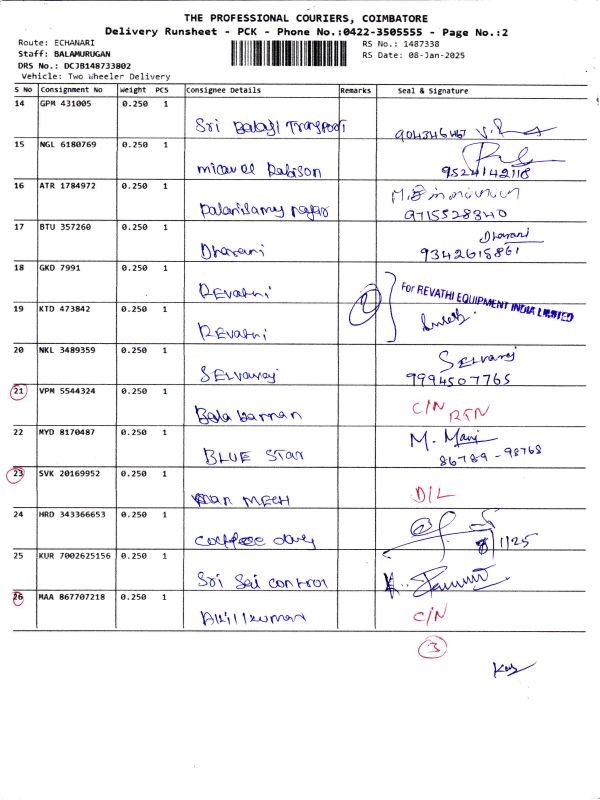 THE PROFESSIONAL COURIERS, COIMBATORE
Delivery Runsheet - PCK - Phone No.:0422-3505555 - Page No.:2
Route: ECHANARI RS No.: 1487338
Staff: BALAMURUGAN RS Date: 08-Jan-2025
DRS No.: DCJB148733802
Vehicle: Two Wheeler Delivery
S No Consignment No Weight PCS Consignee Details Remarks Seal & Signature
14 GPM 431005 0.250 1 Sri Balaji Transport
15 NGL 6180769 0.250 1 9524142118
16 ATR 1784972 0.250 1 Palanisamy 9715528340
17 BTU 357260 0.250 1 Dharani Dharani 9342615861
18 GKD 7991 0.250 1 REvathi 2 For REVATHI EQUIPMENT INDIA LIMITED
19 KTD 473842 0.250 1 REvathi
20 NKL 3489359 0.250 1 SElvaraj SElvaraj 9994507765
21 VPM 5544324 0.250 1 C/N RTN
22 MYD 8170487 0.250 1 BLUE STar M. Mani 86789-98768
23 SVK 20169952 0.250 1 MECH D/L
24 HRD 343366653 0.250 1 1/25
25 KUR 7002625156 0.250 1 Sri Sai control
26 MAA 867707218 0.250 1 C/N
3